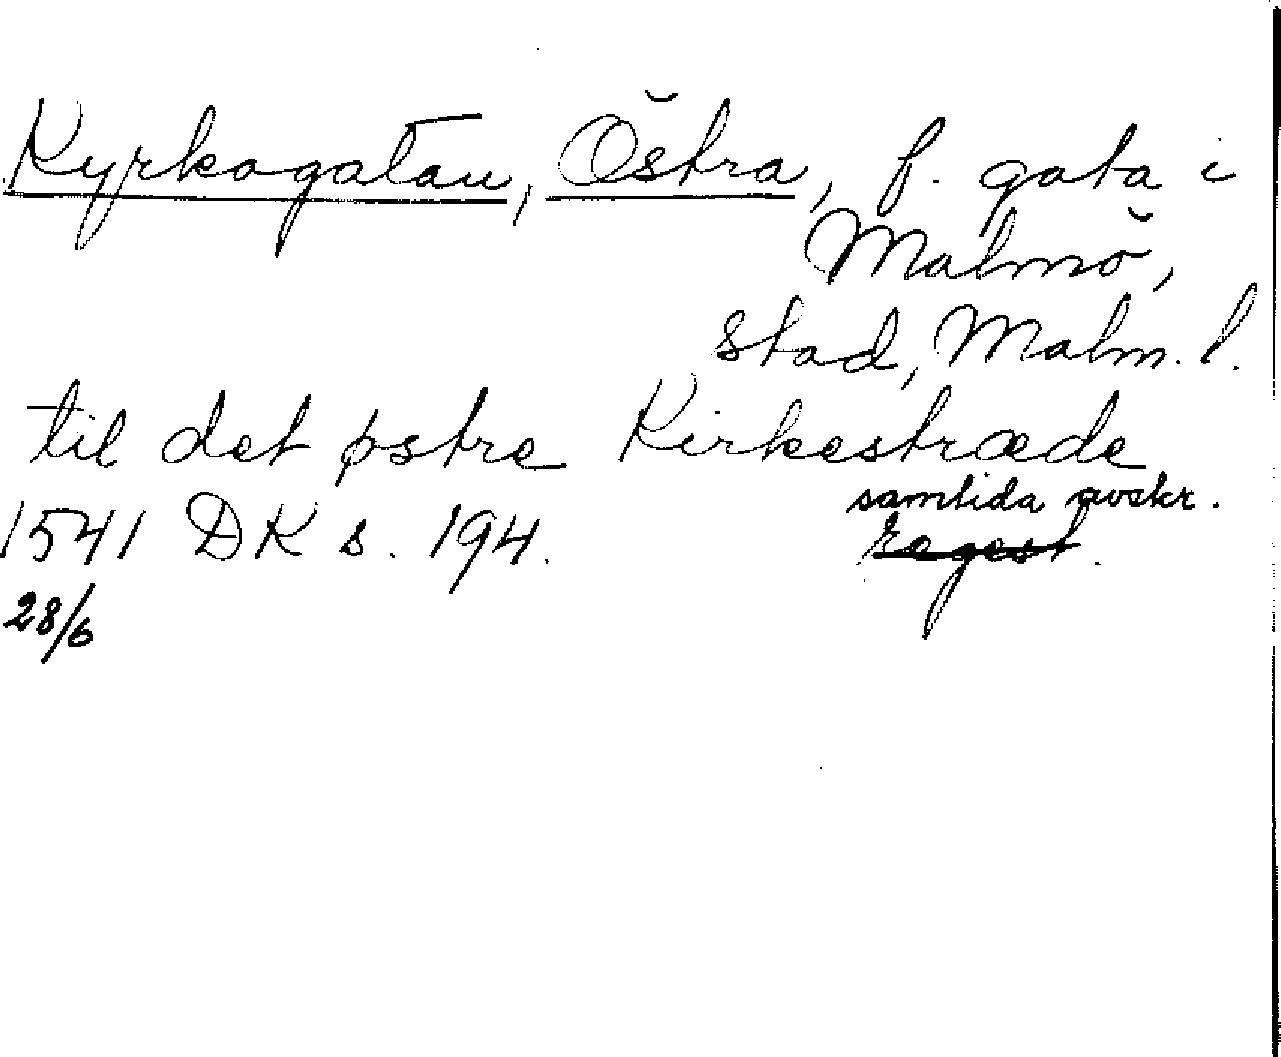 Kyrkogatan, Östra, f. gata i
Malmö,
stad, Malm. l.
til det østre Kirkestræde
samtida avskr.
1541 DK s. 194. regest.
28/6